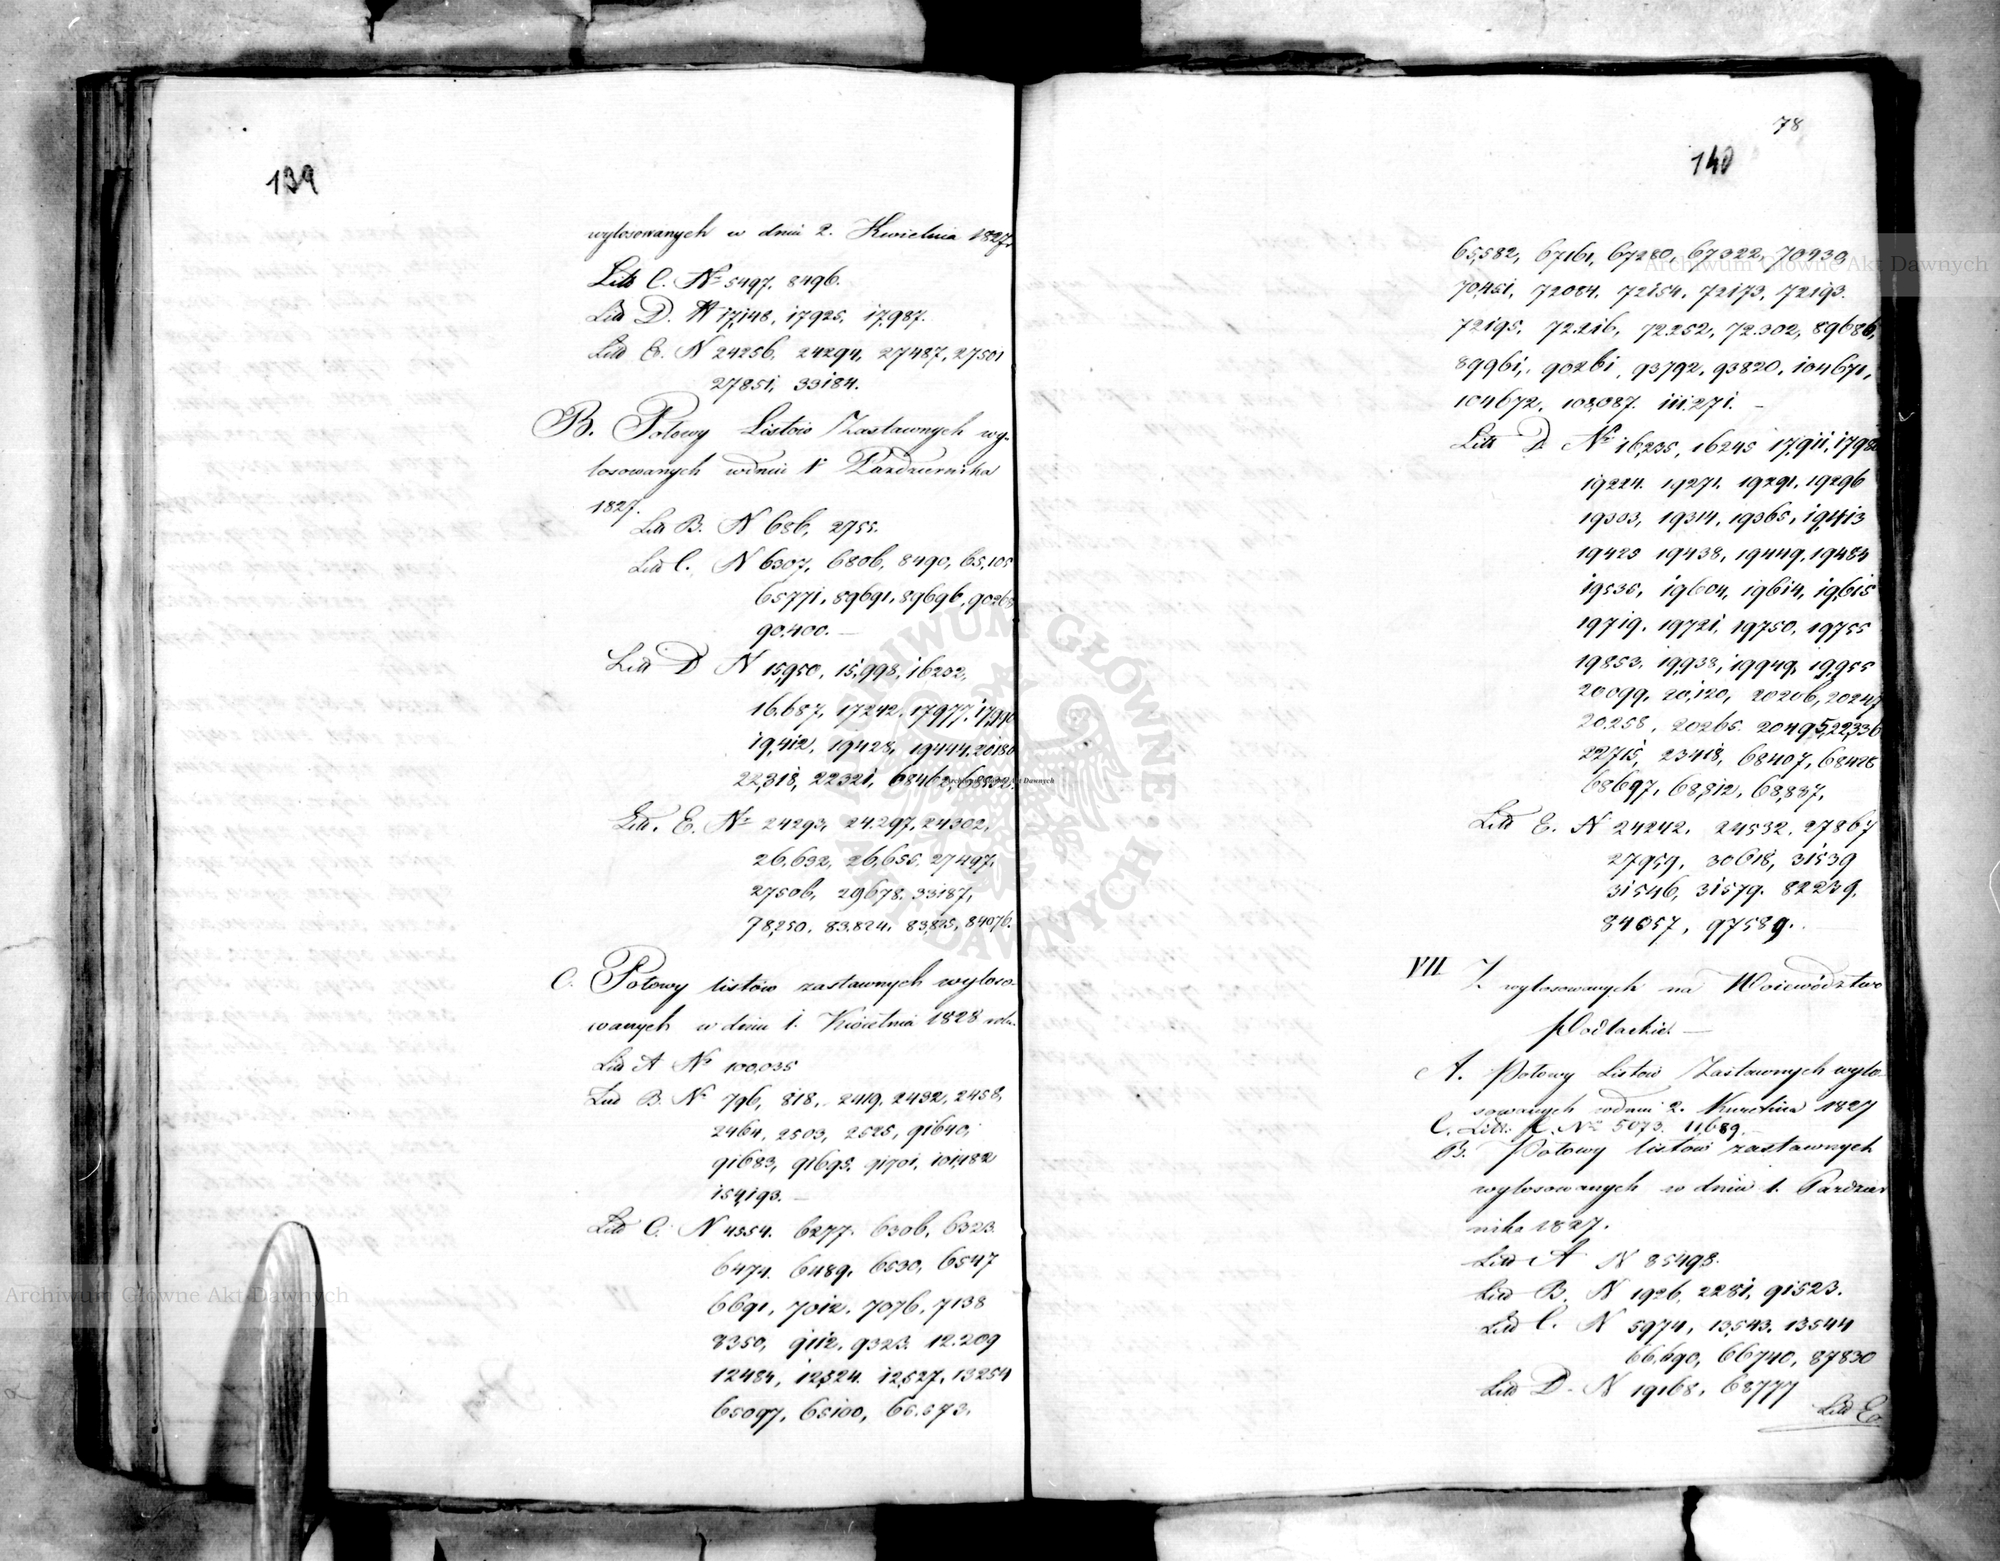 139
wylosowanych w dniu 2. Kwietnia 1827r.
Litt C. No 5497, 8496.
Litt D. N 17,148, 17925, 17,987.
Litt E. N 24256, 24294, 27487, 27501
27851, 33184.
B. Połowy Listów Zastawnych wy-
losowanych wdniu 1o Października
1827.
Litt B. N 686, 2755.
Litt C. N 6307, 6806, 8490, 65,105
65771, 89691, 89696, 90265
90,400. —
Litt D N 15,950, 15,998, 16252,
16,687, 17242, 17977, 17,990
19,412, 19428, 19444, 20180
22,318, 22321, 68462, 68532.
Litt. E. No 24293, 24,297, 24302,
26,632, 26,655, 27497,
27506, 29678, 33187,
78,250, 83,824, 83,825, 84076.
C. Połowy listów zastawnych wyloso-
wanych w dniu 1. Kwietnia 1828 roku.
Litt A No 100,035
Litt B. No 796, 818, 2419, 2432, 2458,
2464, 2503, 2525, 91640,
91683, 91695, 91701, 101,482
159,193. —
Litt C. N 4354. 6277. 6306, 6323.
6474. 6489, 6530, 6547
6691, 7012, 7076, 7138
8350, 9112, 9323. 12.209
12484, 12,524. 12,527, 13254
65097, 65100, 65,573.
78
140
65,582, 67161, 67280, 67322, 70930,
70,451, 72084, 72154, 72173, 72193.
72195, 72.216, 72.252, 72.302, 89686,
89961, 90261, 93792, 93820, 104671,
104672, 108,087. 111,271. —
Litt D No 16,235, 16245 17,911, 1792
19224. 19271. 19291, 19296
19303, 19314, 19365, 19,413
19425 19438, 19449, 19484
19535, 19604, 19614, 19,615
19719, 19721, 19750, 19755
19853, 19,938, 19949, 19,955
20099, 20,120, 20206, 20247
20.258, 20265. 20495, 22,336
22715, 23418, 68407, 68428
68697, 68,812, 68,887,
Litt E. N 24242, 24532, 27867
27959, 30618, 31539
31546, 31579. 82239,
84057, 97589.
VII Z wylosowanych na Woiewództwo
Podlaskie. —
A. Połowy Listów Zastawnych wylo-
sowanych wdniu 2. Kwietnia 1827
C. Litt. C. No 5073. 11,689. —
B. Połowy listów zastawnych
wylosowanych w dniu 1. Paździer
nika 1827.
Litt A N 85498.
Litt B. N 1926, 2281, 91523.
Litt C. N 5974, 13,543, 13544
66,690, 66740, 87830
Litt D. N 19168, 68777
Litt E.
Archiwum Główne Akt Dawnych
Archiwum Główne Akt Dawnych
Archiwum Główne Akt Dawnych
ARCHIWUM GŁÓWNE AKT DAWNYCH